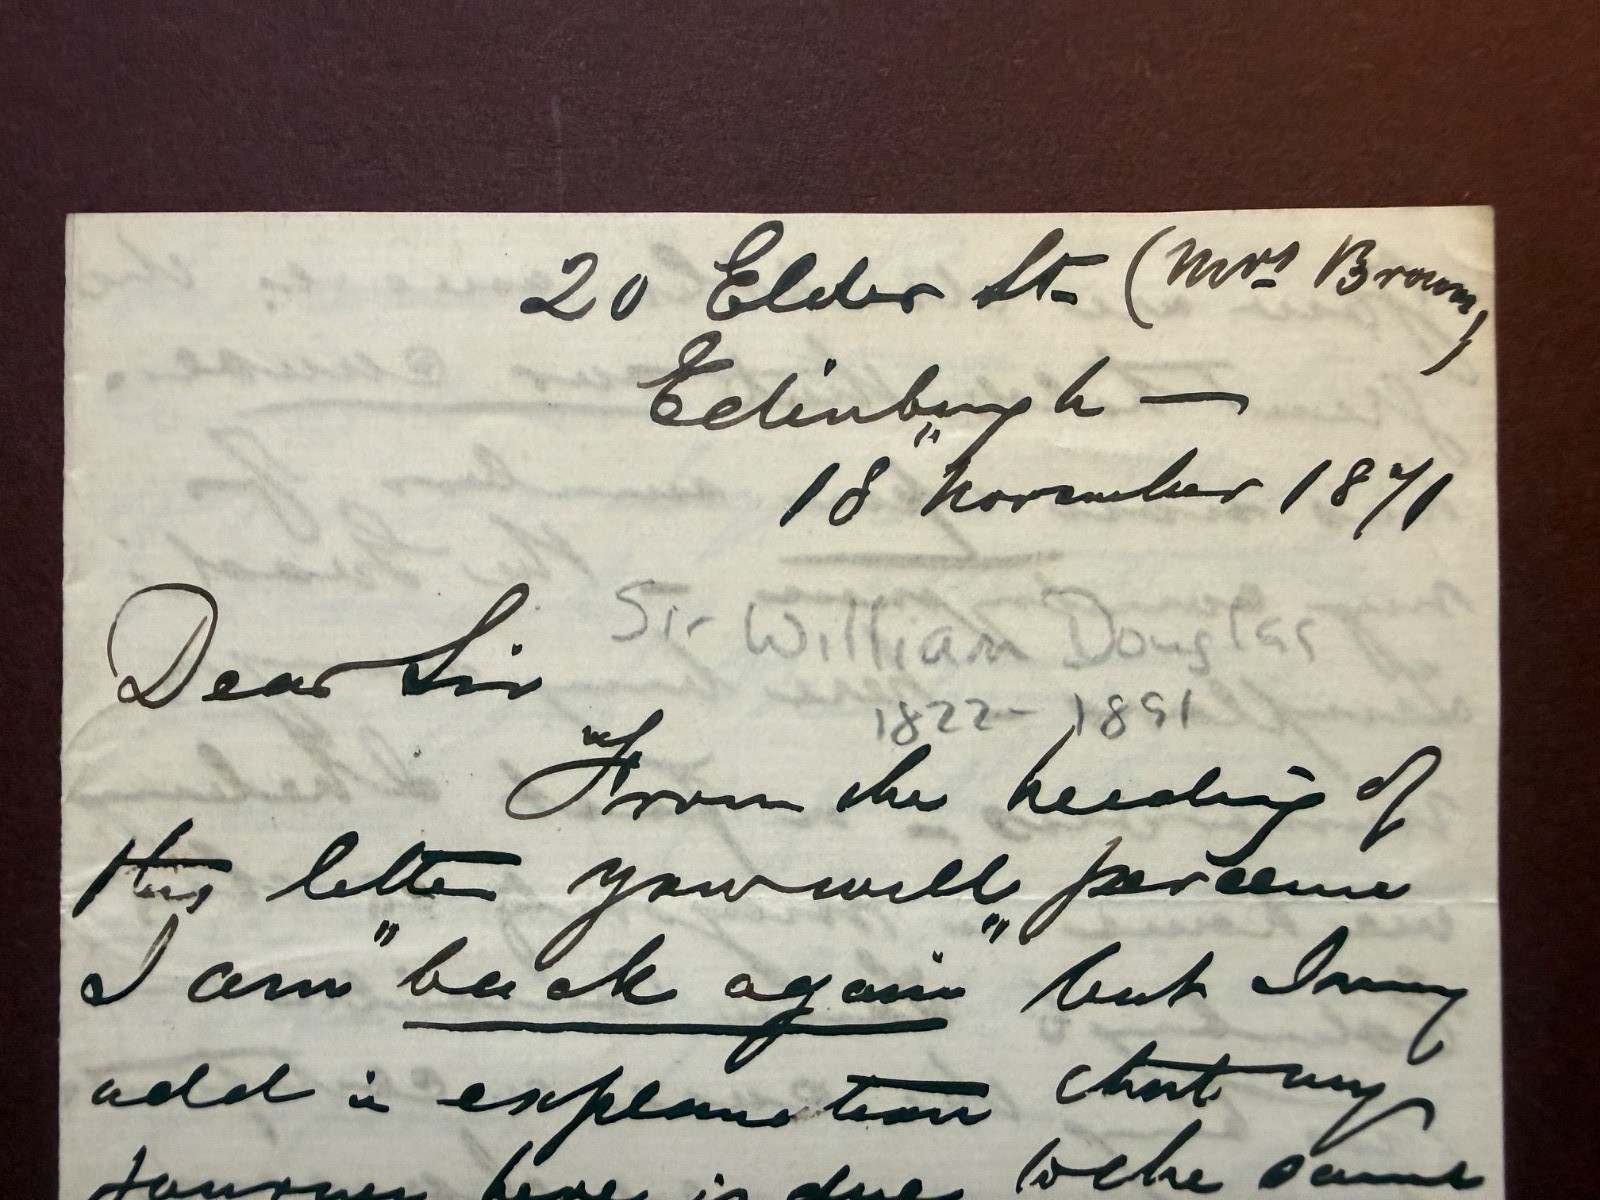 20 Elder St. (Mrs. Brown)
Edinburgh —
18" November 1871
Dear Sir
Sir William Douglas
1822 - 1891
From the heading of
this letter you will perceive
I am "back again" but I may
add in explanation that my
journey here is due to the same